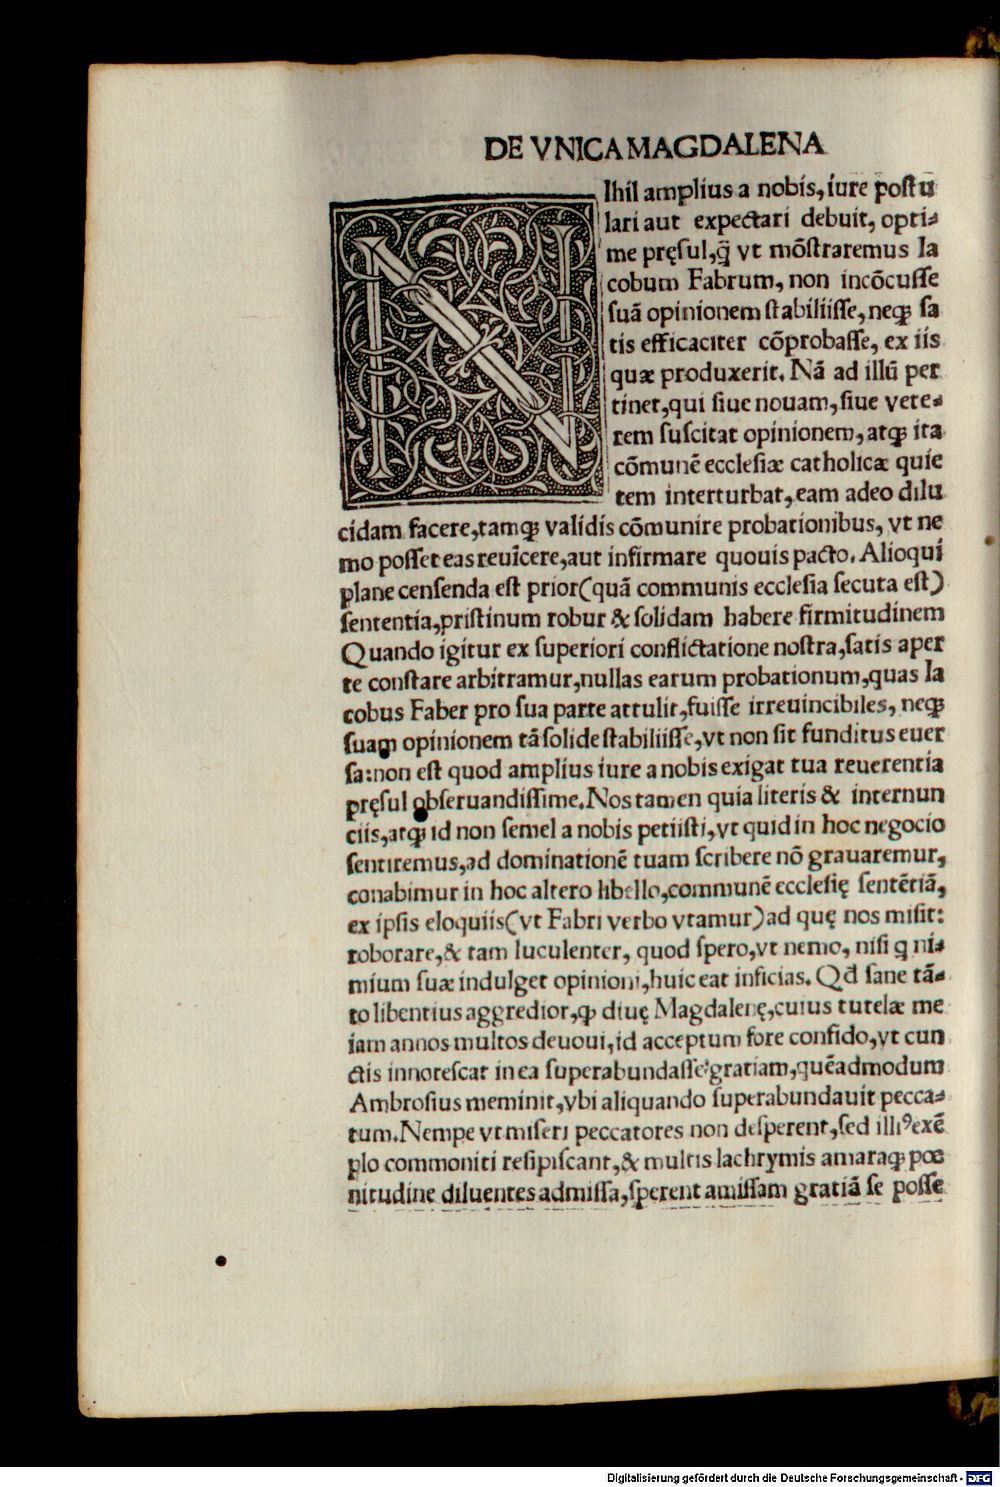 DE VNICA MAGDALENA
NIhil amplius a nobis, iure postu
lari aut expectari debuit, opti⸗
me pręsul, q̃ vt mõstraremus Ia
cobum Fabrum, non incõcusse
suã opinionem stabiliisse, neqꝫ sa
tis efficaciter cõprobasse, ex iis
quæ produxerit. Nã ad illũ per
tinet, qui siue nouam, siue vete⸗
rem suscitat opinionem, atqꝫ ita
cõmunẽ ecclesiæ catholicæ quie
tem interturbat, eam adeo dilu
cidam facere, tamqꝫ validis cõmunire probationibus, vt ne
mo posset eas reuĩcere, aut infirmare quouis pacto. Alioqui
plane censenda est prior (quã communis ecclesia secuta est)
sententia, pristinum robur & solidam habere firmitudinem
Quando igitur ex superiori conflictatione nostra, satis aper
te constare arbitramur, nullas earum probationum, quas Ia
cobus Faber pro sua parte attulit, fuisse irreuincibiles, neqꝫ
suam opinionem tã solide stabiliisse, vt non sit funditus euer
sa: non est quod amplius iure a nobis exigat tua reuerentia
pręsul obseruandissime. Nos tamen quia literis & internun
ciis, atqꝫ id non semel a nobis petiisti, vt quid in hoc negocio
sentiremus, ad dominationẽ tuam scribere nõ grauaremur,
conabimur in hoc altero libello, communẽ ecclesię sentẽtiã,
ex ipsis eloquiis (vt Fabri verbo vtamur) ad quę nos misit:
roborare, & tam luculenter, quod spero, vt nemo, nisi q ni⸗
mium suæ indulget opinioni, huic eat inficias. Qd̃ sane tã⸗
to libentius aggredior, ꝙ diuę Magdalenę, cuius tutelæ me
iam annos multos deuoui, id acceptum fore confido, vt cun
ctis innotescat in ea superabundasse gratiam, quẽadmodum
Ambrosius meminit, vbi aliquando superabundauit pecca⸗
tum. Nempe vt miseri peccatores non desperent, sed illiꝰ exẽ
plo commoniti resipiscant, & multis lachrymis amaraqꝫ pœ
nitudine diluentes admissa, sperent amissam gratiã se posse
Digitalisierung gefördert durch die Deutsche Forschungsgemeinschaft - DFG